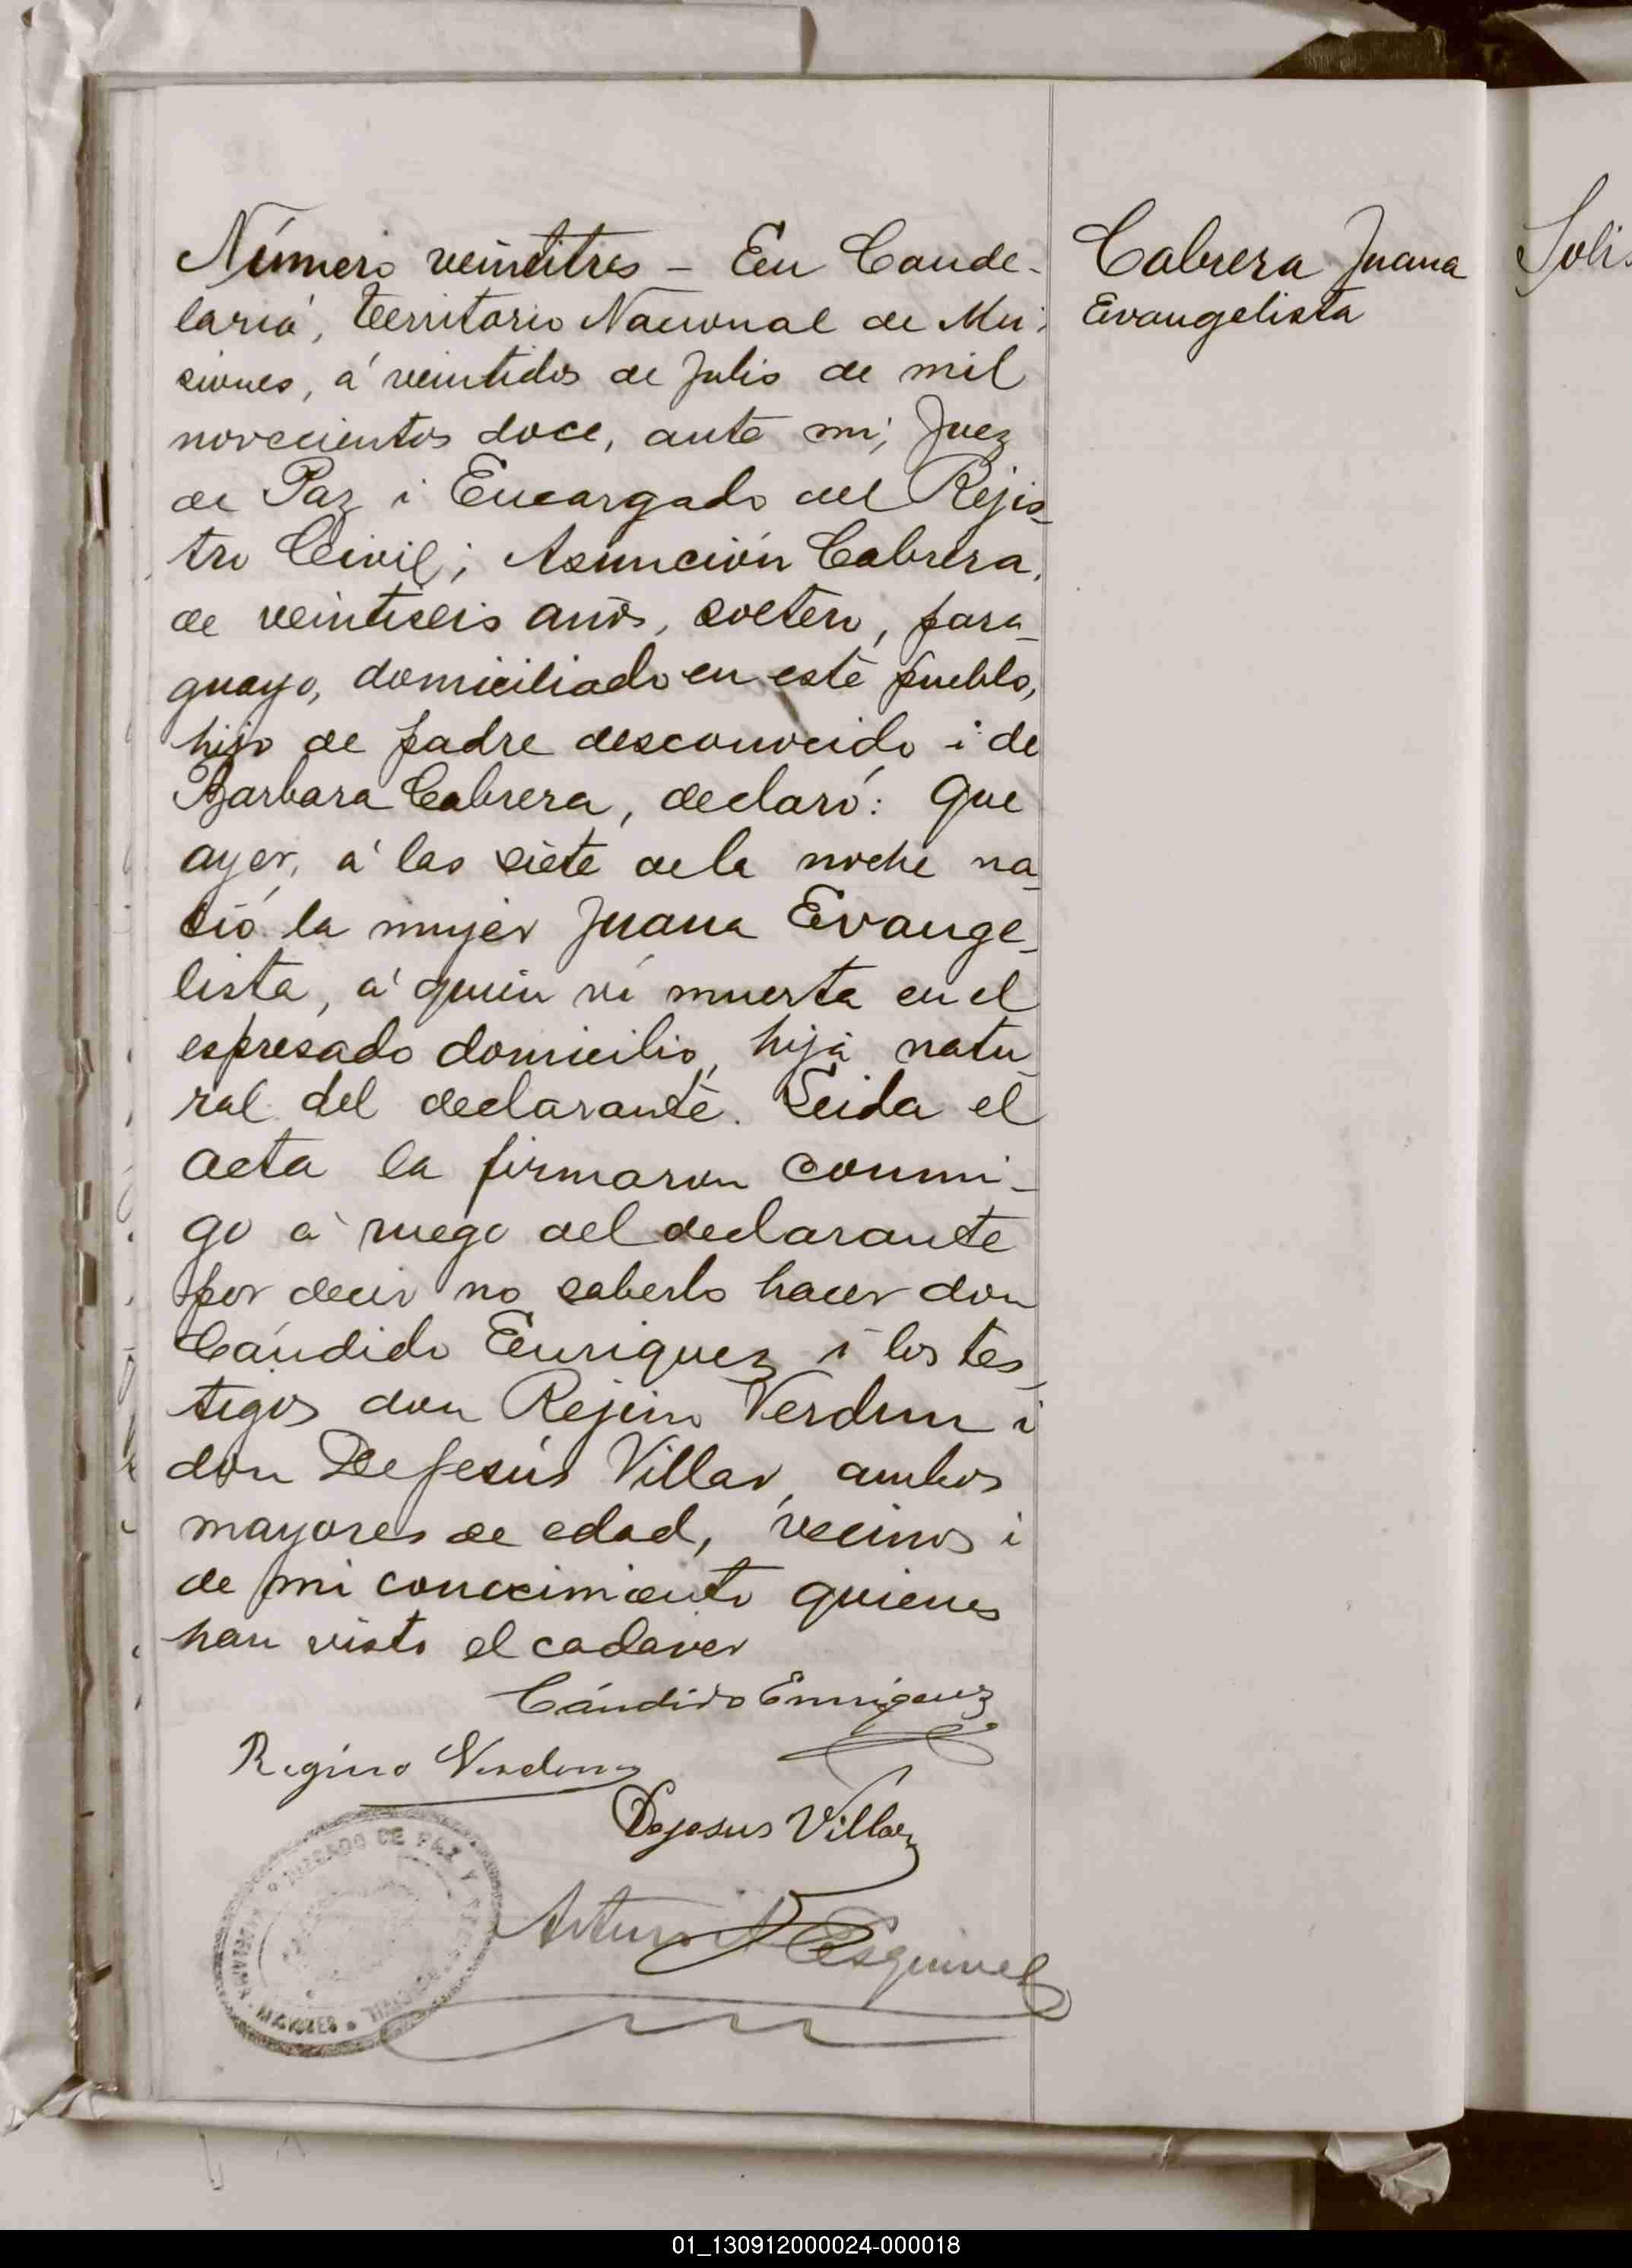 Número veintitres - En Cande-
laria, Territorio Nacional de Mi-
siones, á veintidos de Julio de mil
novecientos doce, ante mi, Juez
de Paz i Encargado del Rejis-
tro Civil; Asunción Cabrera,
de veintiseis años, soltero, para-
guayo, domiciliado en este pueblo,
hijo de padre desconocido i de
Barbara Cabrera, declaró: Que
ayer, á las siete de la noche na-
ció la mujer Juana Evange-
lista, á quien ví muerta en el
espresado domicilio, hija natu-
ral del declarante. Leida el
acta la firmaron conmi-
go á ruego del declarante
por decir no saberlo hacer don
Cándido Enriquez i los tes-
tigos don Rejino Verdun i
don Dejesús Villar, ambos
mayores de edad, vecinos i
de mi conocimiento quienes
han visto el cadaver
Cándido Enriquez
Regino Verdun
Dejesus Villar
Arturo Esquivel
JUZGADO DE PAZ Y
CIVIL
MISIONES
Cabrera Juana
Evangelista
01_130912000024-000018